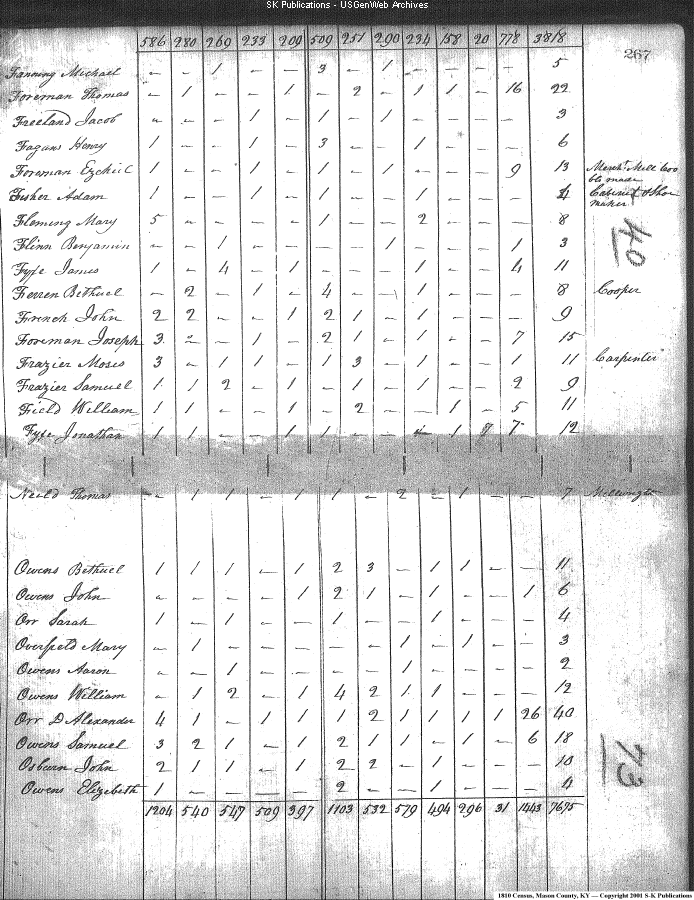 SK Publications - USGenWeb Archives
586 280 269 233 200 509 251 290 234 158 20 778 3818
267
Fanning Michael – – 1 – – 3 – 1 – – – – 5
Foreman Thomas – 1 – – 1 – 2 – 1 1 – 16 22
Freeland Jacob – – – 1 – 1 – 1 – – – – 3
Fagans Henry 1 – – 1 – 3 – – 1 – – – 6
Foreman Ezekiel 1 – – 1 – 1 – 1 – – – 9 13 Mercht Mill 600
bbls made
Fisher Adam 1 – – 1 – – – – 1 – – – 4 Cabinet & Shoe
maker
Fleming Mary 5 – – – – 1 – – 2 – – – 8
40
Flinn Benjamin – – 1 – – – – 1 – – – 1 3
Fyfe James 1 – 4 – 1 – – – 1 – – 4 11
Ferren Bethuel – 2 – 1 – 4 – – 1 – – – 8 Cooper
French John 2 2 – – 1 2 1 – 1 – – – 9
Foreman Joseph 3 – – 1 – 2 1 – 1 – – 7 15
Frazier Moses 3 – 1 1 – 1 3 – 1 – – 1 11 Carpenter
Frazier Samuel 1 1 2 – 1 – 1 – 1 – – 2 9
Field William 1 1 – – 1 – 2 – – 1 – 5 11
Fyfe Jonathan 1 1 – – 1 1 – – – 1 7 12
Neild Thomas – 1 1 – 1 1 – 2 – 1 – – 7
Owens Bethuel 1 1 1 – 1 2 3 – 1 1 – – 11
Owens John – – – – 1 2 1 – 1 – – 1 6
Orr Sarah 1 – 1 – – 1 – – 1 – – – 4
Overfield Mary – 1 – – – – – 1 – 1 – – 3
Owens Aaron – – 1 – – – – 1 – – – – 2
Owens William – 1 2 – 1 4 2 1 1 – – – 12
Orr D Alexander 4 1 – 1 1 1 2 1 1 1 1 26 40
Owens Samuel 3 2 1 – 1 2 1 1 – 1 – 6 18
73
Osburn John 2 1 1 – 1 2 2 – 1 – – – 10
Owens Elizebeth 1 – – – – 2 – – 1 – – – 4
1204 540 547 509 397 1103 532 579 494 296 31 1443 7675
1810 Census, Mason County, KY — Copyright 2001 S-K Publications